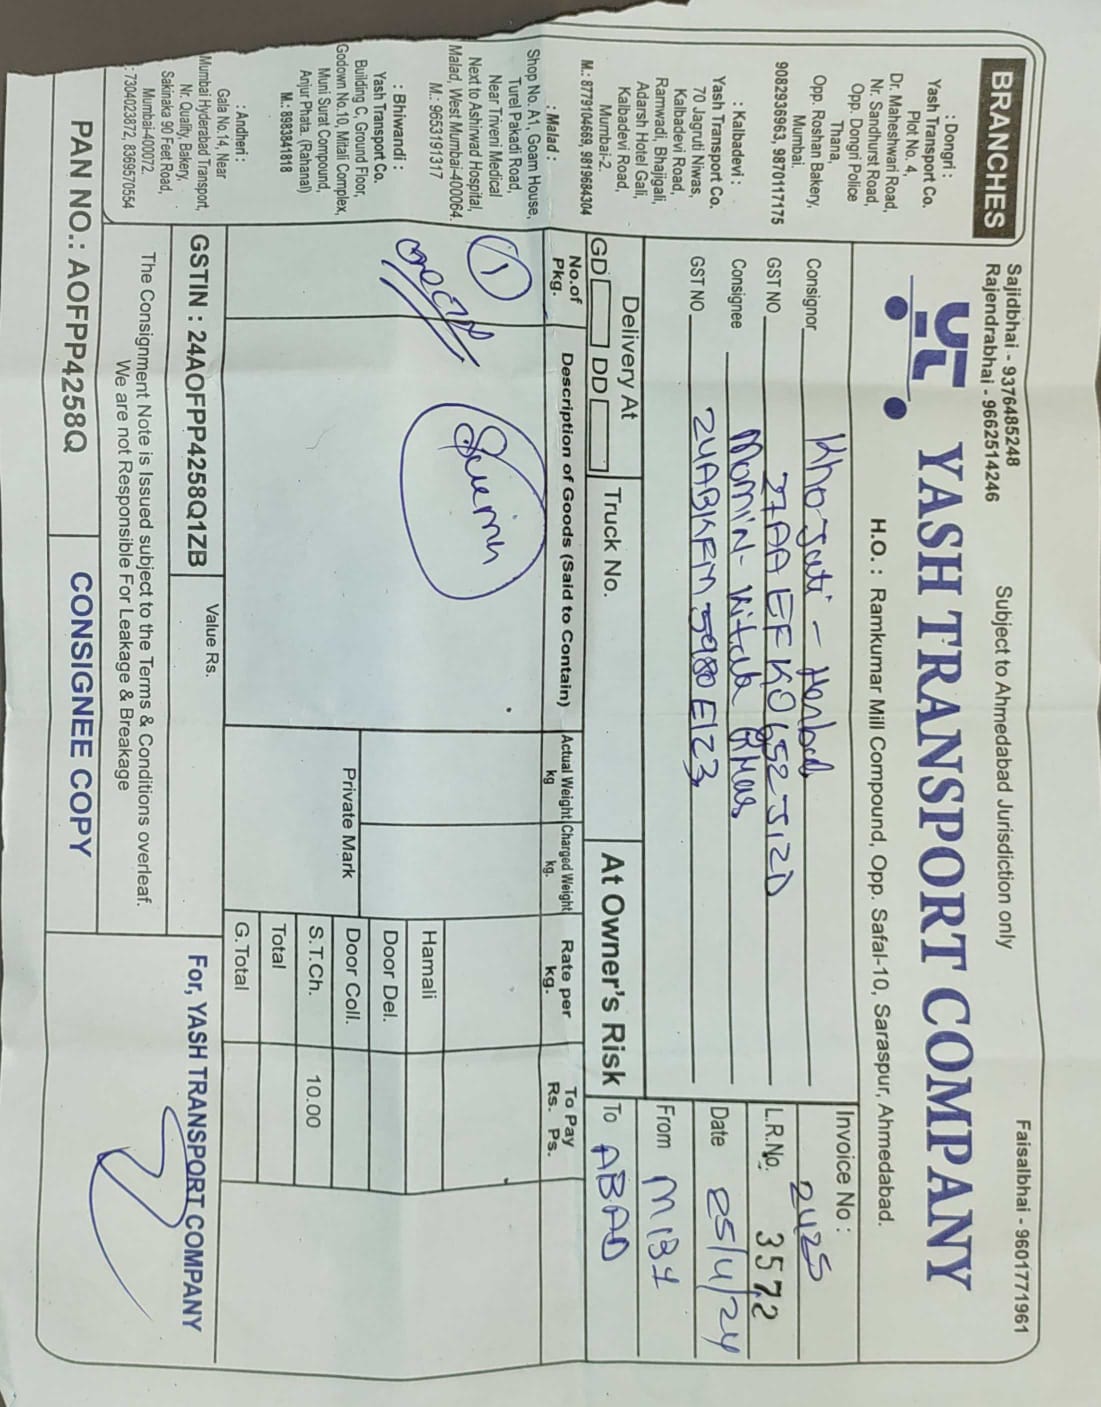 Sajidbhai - 9376485248
Rajendrabhai - 9662514246
Subject to Ahmedabad Jurisdiction only
Faisalbhai - 9601771961
YASH TRANSPORT COMPANY
H.O. : Ramkumar Mill Compound, Opp. Safal-10, Saraspur, Ahmedabad.
BRANCHES
: Dongri :
Yash Transport Co.
Plot No. 4,
Dr. Maheshwari Road,
Nr. Sandhurst Road,
Opp. Dongri Police
Thana,
Opp. Roshan Bakery,
Mumbai.
9082936963, 9870117175
: Kalbadevi :
Yash Transport Co.
70 Jagruti Niwas,
Kalbadevi Road,
Ramwadi, Bhajigali,
Adarsh Hotel Gali,
Kalbadevi Road,
Mumbai-2.
M.: 8779104669, 9819684304
: Malad :
Shop No. A1, Goam House,
Turel Pakadi Road,
Near Triveni Medical
Next to Ashirwad Hospital,
Malad, West Mumbai-400064.
M.: 9653191317
: Bhiwandi :
Yash Transport Co.
Building C, Ground Floor,
Godown No.10, Mitali Complex,
Muni Surat Compound,
Anjur Phata. (Rahanal)
M.: 8983841818
: Andheri :
Gala No.14, Near
Mumbai Hyderabad Transport,
Nr. Quality Bakery,
Sakinaka 90 Feet Road,
Mumbai-400072.
: 7304023872, 8369570554
Consignor
GST NO 27AAEFK0652J1ZD
Consignee MOMIN-
GST NO 24ABKFM5980E1Z3
Invoice No : 2425
L.R.No. 3572
Date 25/4/24
From
To ABAD
Delivery At
GD DD
Truck No.
At Owner's Risk
No.of Pkg.
Description of Goods (Said to Contain)
Actual Weight kg
Charged Weight kg.
Rate per kg.
To Pay Rs. Ps.
1
Hamali
Door Del.
Private Mark
Door Coll.
S.T.Ch. 10.00
Total
G.Total
GSTIN : 24AOFPP4258Q1ZB
Value Rs.
For, YASH TRANSPORT COMPANY
The Consignment Note is Issued subject to the Terms & Conditions overleaf.
We are not Responsible For Leakage & Breakage
PAN NO.: AOFPP4258Q
CONSIGNEE COPY